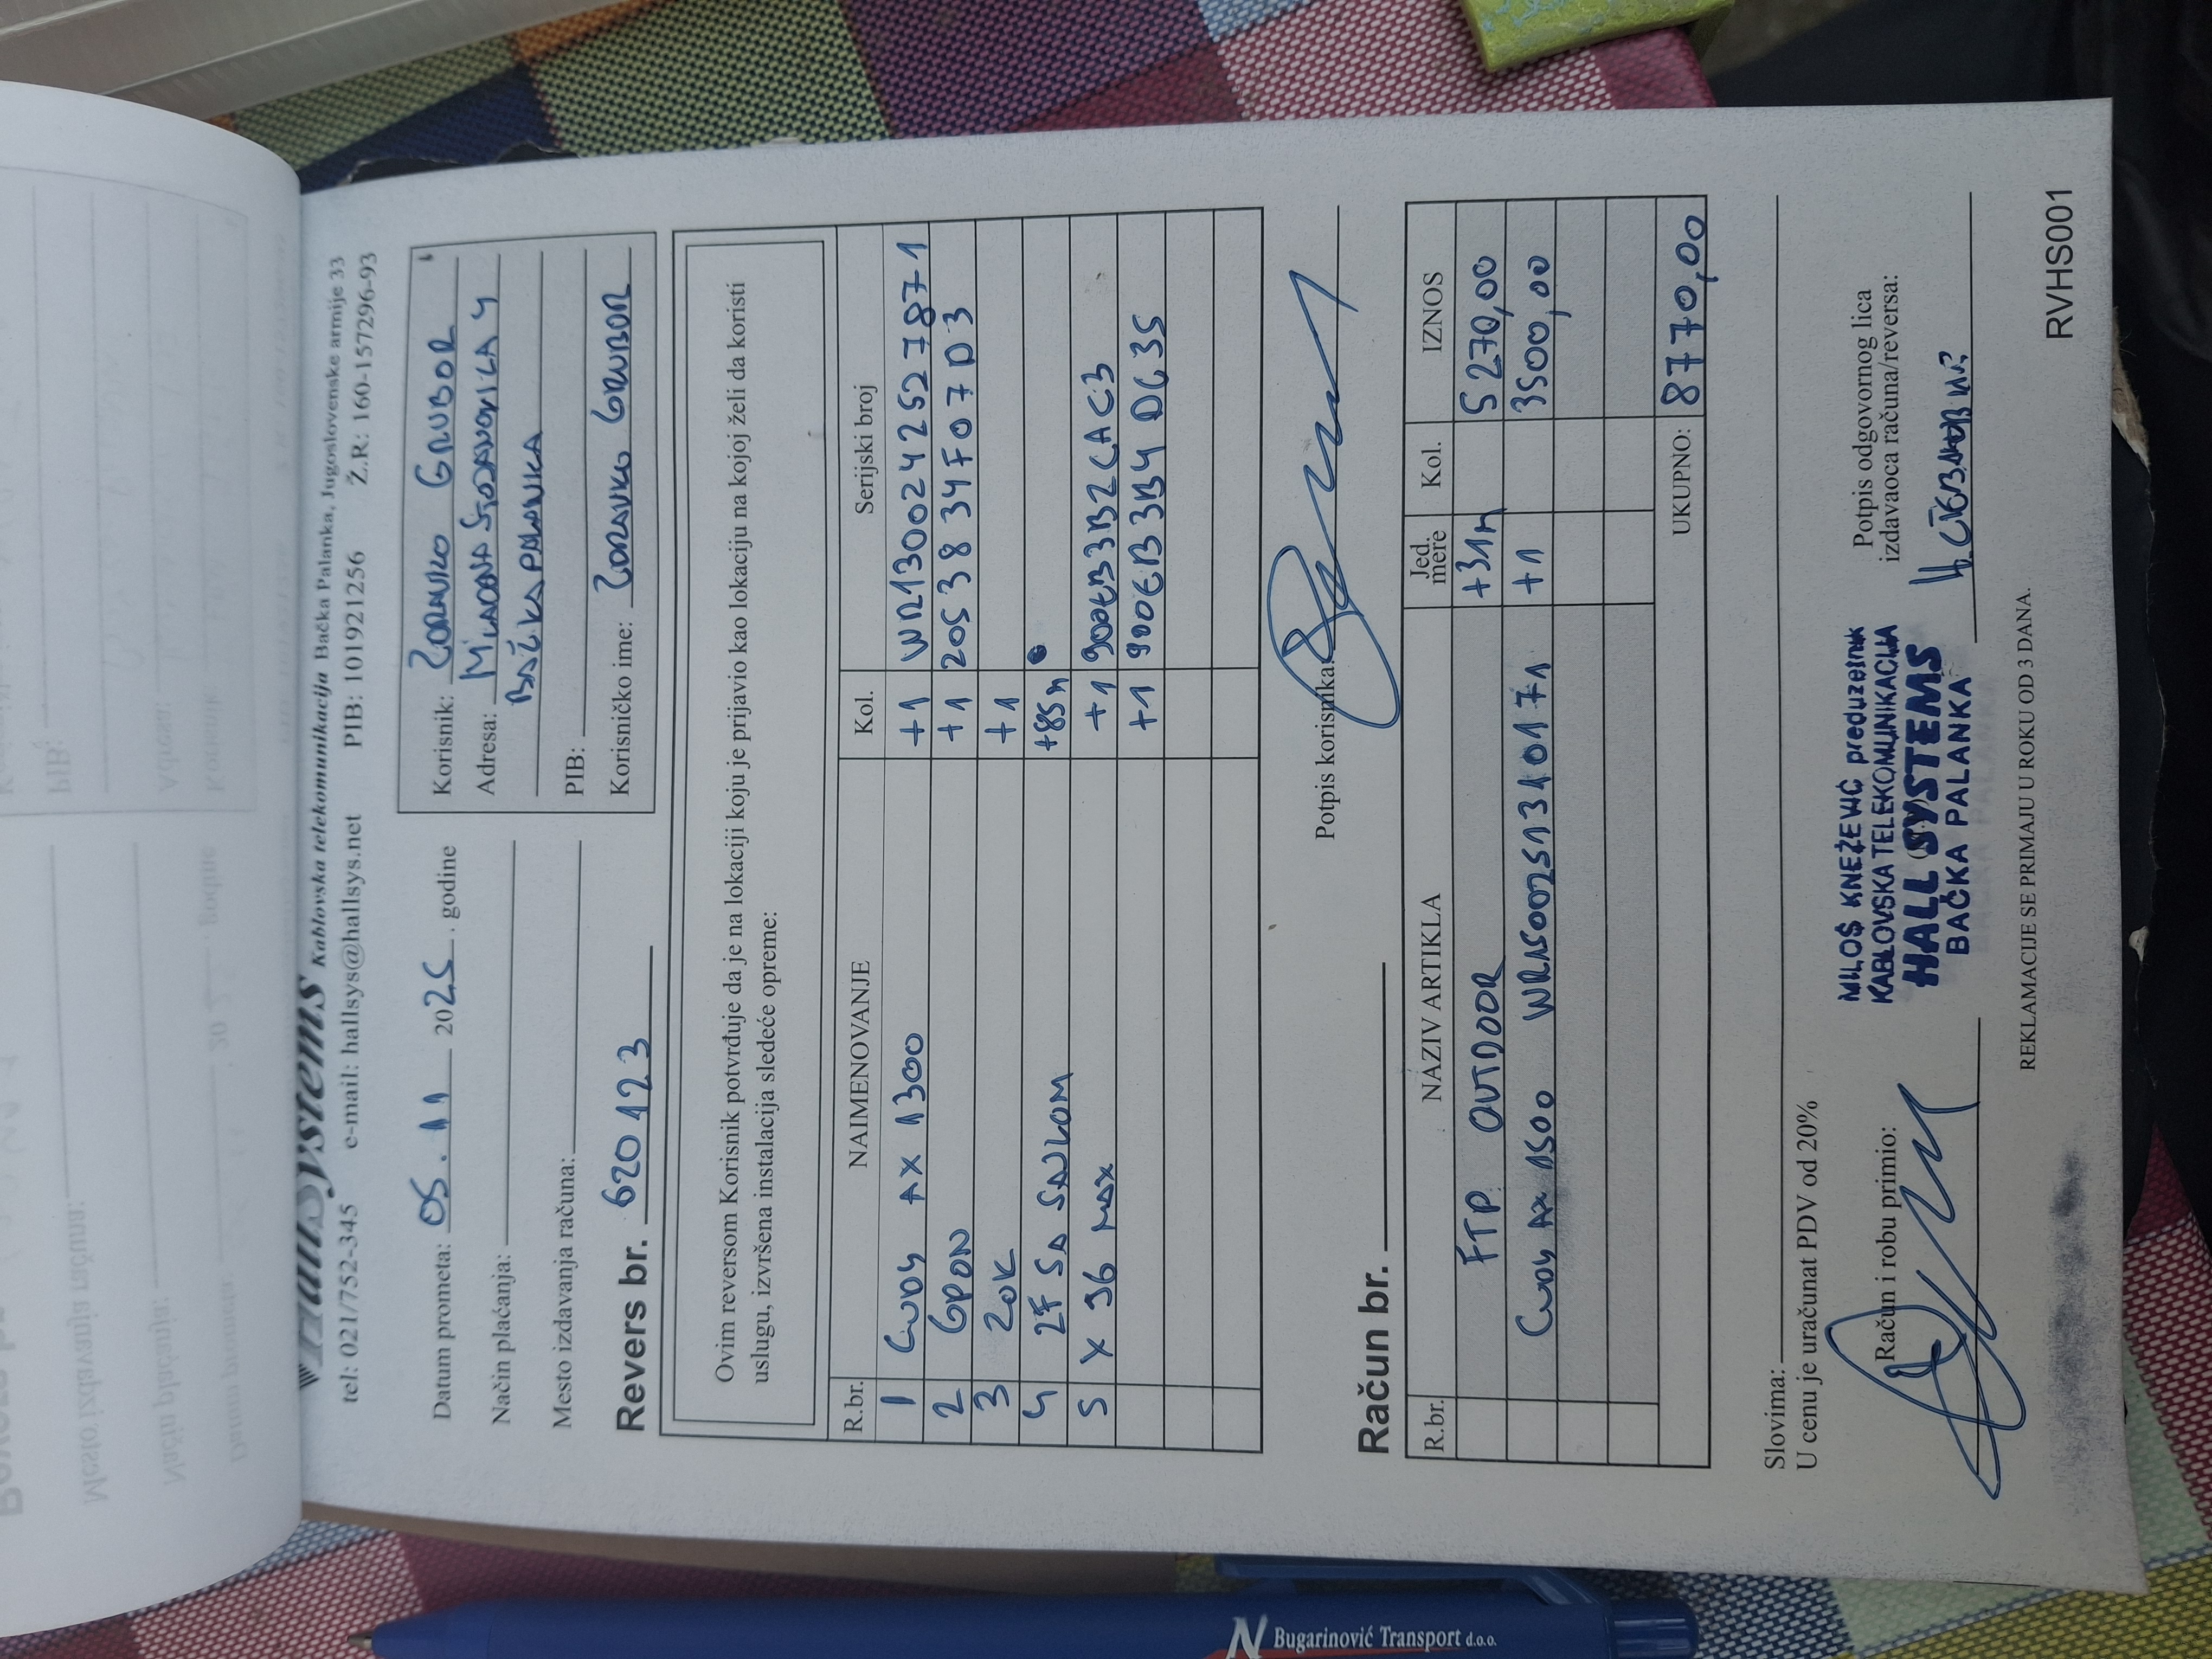 HallSystems Kablovska telekomunikacija Bačka Palanka, Jugoslovenske armije 33
tel: 021/752-345 e-mail: hallsys@hallsys.net PIB: 101921256 Ž.R: 160-157296-93
Datum prometa: 05.11 2025. godine
Način plaćanja:
Mesto izdavanja računa:
Revers br. 620123
Korisnik: ZDRAVKO GRUBOR
Adresa: MLADENA STOJANOVIĆA 4
BAČKA PALANKA
PIB:
Korisničko ime: ZDRAVKO GRUBOR
Ovim reversom Korisnik potvrđuje da je na lokaciji koju je prijavio kao lokaciju na kojoj želi da koristi
uslugu, izvršena instalacija sledeće opreme:
R.br. NAIMENOVANJE Kol. Serijski broj
1 CUDY AX 1300 +1 WR13002425278 71
2 GPON +1 2053834F07D3
3 ZOK +1
4 2F SA SAJLOM +85m
5 X 96 MAX +1 900EB3B2CAC3
+1 900EB3B4DC35
Potpis korisnika:
Račun br.
R.br. NAZIV ARTIKLA Jed. mere Kol. IZNOS
FTP OUTDOOR +31m 5270,00
CUDY AX 1500 WR1500251340171 +1 3500,00
UKUPNO: 8770,00
Slovima:
U cenu je uračunat PDV od 20%
Račun i robu primio:
MILOŠ KNEŽEVIĆ preduzetnik
KABLOVSKA TELEKOMUNIKACIJA
HALL SYSTEMS
BAČKA PALANKA
Potpis odgovornog lica
izdavaoca računa/reversa:
REKLAMACIJE SE PRIMAJU U ROKU OD 3 DANA.
RVHS001
Bugarinović Transport d.o.o.